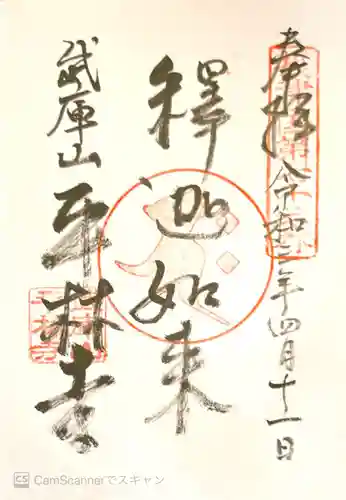 奉拝 令和三年四月十一日
釋迦如来
武庫山 平林寺
CamScannerでスキャン